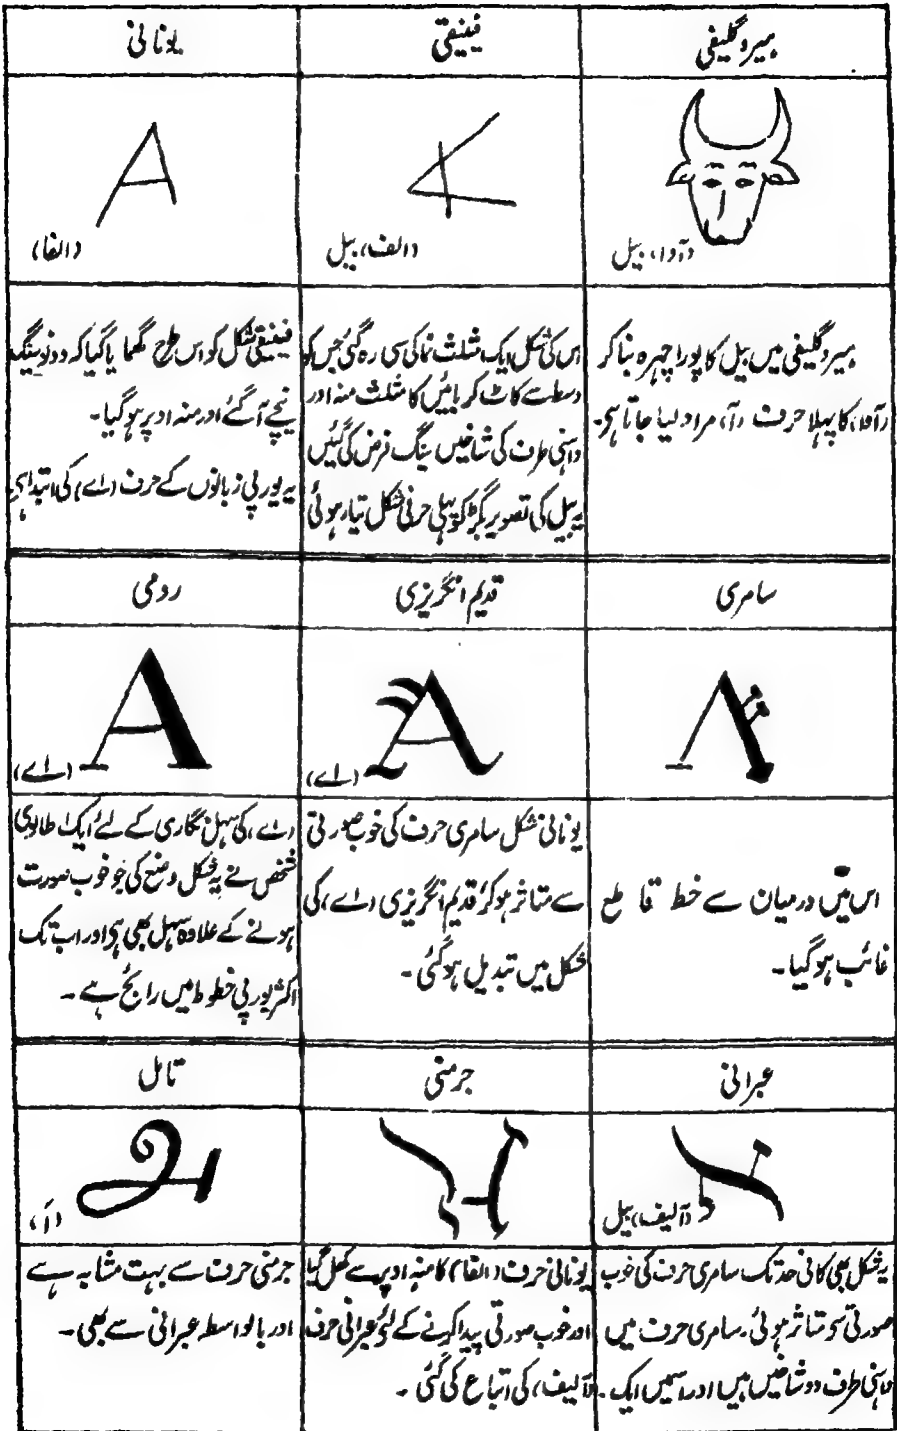 ہیروگلیفی
فینیقی
یونانی
(آوا) بیل
(الف) بیل
(الفا)
ہیروگلیفی میں بیل کا پورا چہرہ بنا کر
کا پہلا حرف (آ) مراد لیا جاتا ہی۔
اس کی شکل ایک مثلث نما کی سی رہ گئی جس کو
وسط سے کاٹ کر بائیں کا مثلث منہ اور
داہنی طرف کی شاخیں سینگ فرض کی گئیں
یہ بیل کی تصویر بگڑ کو پہلی حرفی شکل تیار ہوئی
فینیقی شکل کو اس طرح گھمایا گیا کہ دونوں سینگ
نیچے آ گئے اور منہ اوپر ہو گیا۔
یہ یورپی زبانوں کے حرف (اے) کی ابتدا ہی
سامری
قدیم انگریزی
رومی
(اے)
(اے)
اس میں درمیان سے خط قاطع
غائب ہو گیا۔
یونانی شکل سامری حرف کی خوب صورتی
سے متاثر ہو کر قدیم انگریزی (اے) کی
شکل میں تبدیل ہو گئی۔
(اے) کی سہل نگاری کے لئے ایک
شخص نے یہ شکل وضع کی جو خوب صورت
ہونے کے علاوہ سہل بھی ہی اور اب تک
اکثر یورپی خطوط میں رائج ہے۔
عبرانی
جرمنی
تامل
(آلیف) بیل
(اَ)
یہ شکل بھی کافی حد تک سامری حرف کی خوب
صورتی سو متاثر ہوئی۔ سامری حرف میں
داہنی طرف دو شاخیں ہیں اور اسمیں ایک۔
یونانی حرف (الفا) کا منہ اوپر سے کھل گیا
اور خوب صورتی پیدا کرنے کے لئے عبرانی حرف
(آلیف) کی اتباع کی گئی۔
جرمنی حرف سے بہت مشابہ ہے
اور بالواسطہ عبرانی سے بھی۔